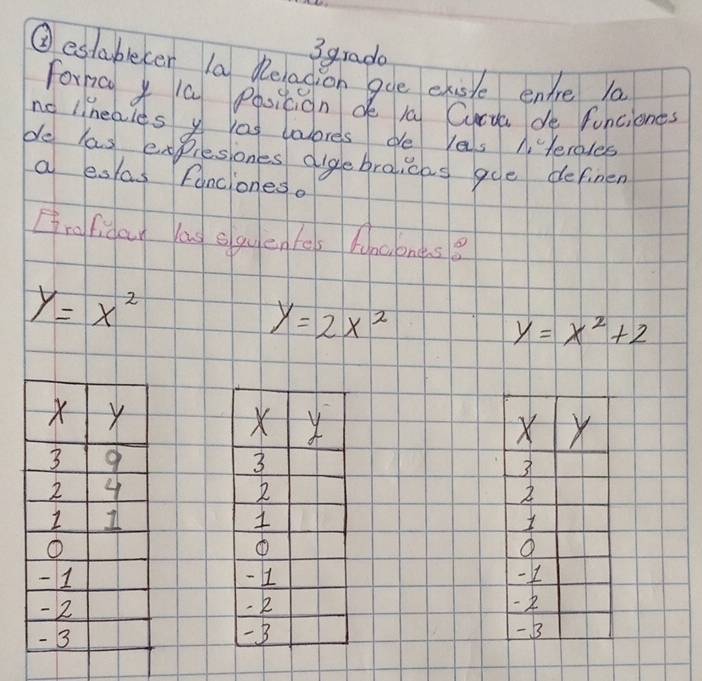 3 grado
① establecer la Relación que existe entre la
forma y la Posición de la Curva de funciones
no lineales y los valores de las literales
de las expresiones algebraicas que definen
a estas funciones.
Graficar las siguientes funciones:
y = x²
y = 2x²
y = x² + 2
x y
3 9
2 4
1 1
0
-1
-2
-3
x y
3
2
1
0
-1
-2
-3
x y
3
2
1
0
-1
-2
-3